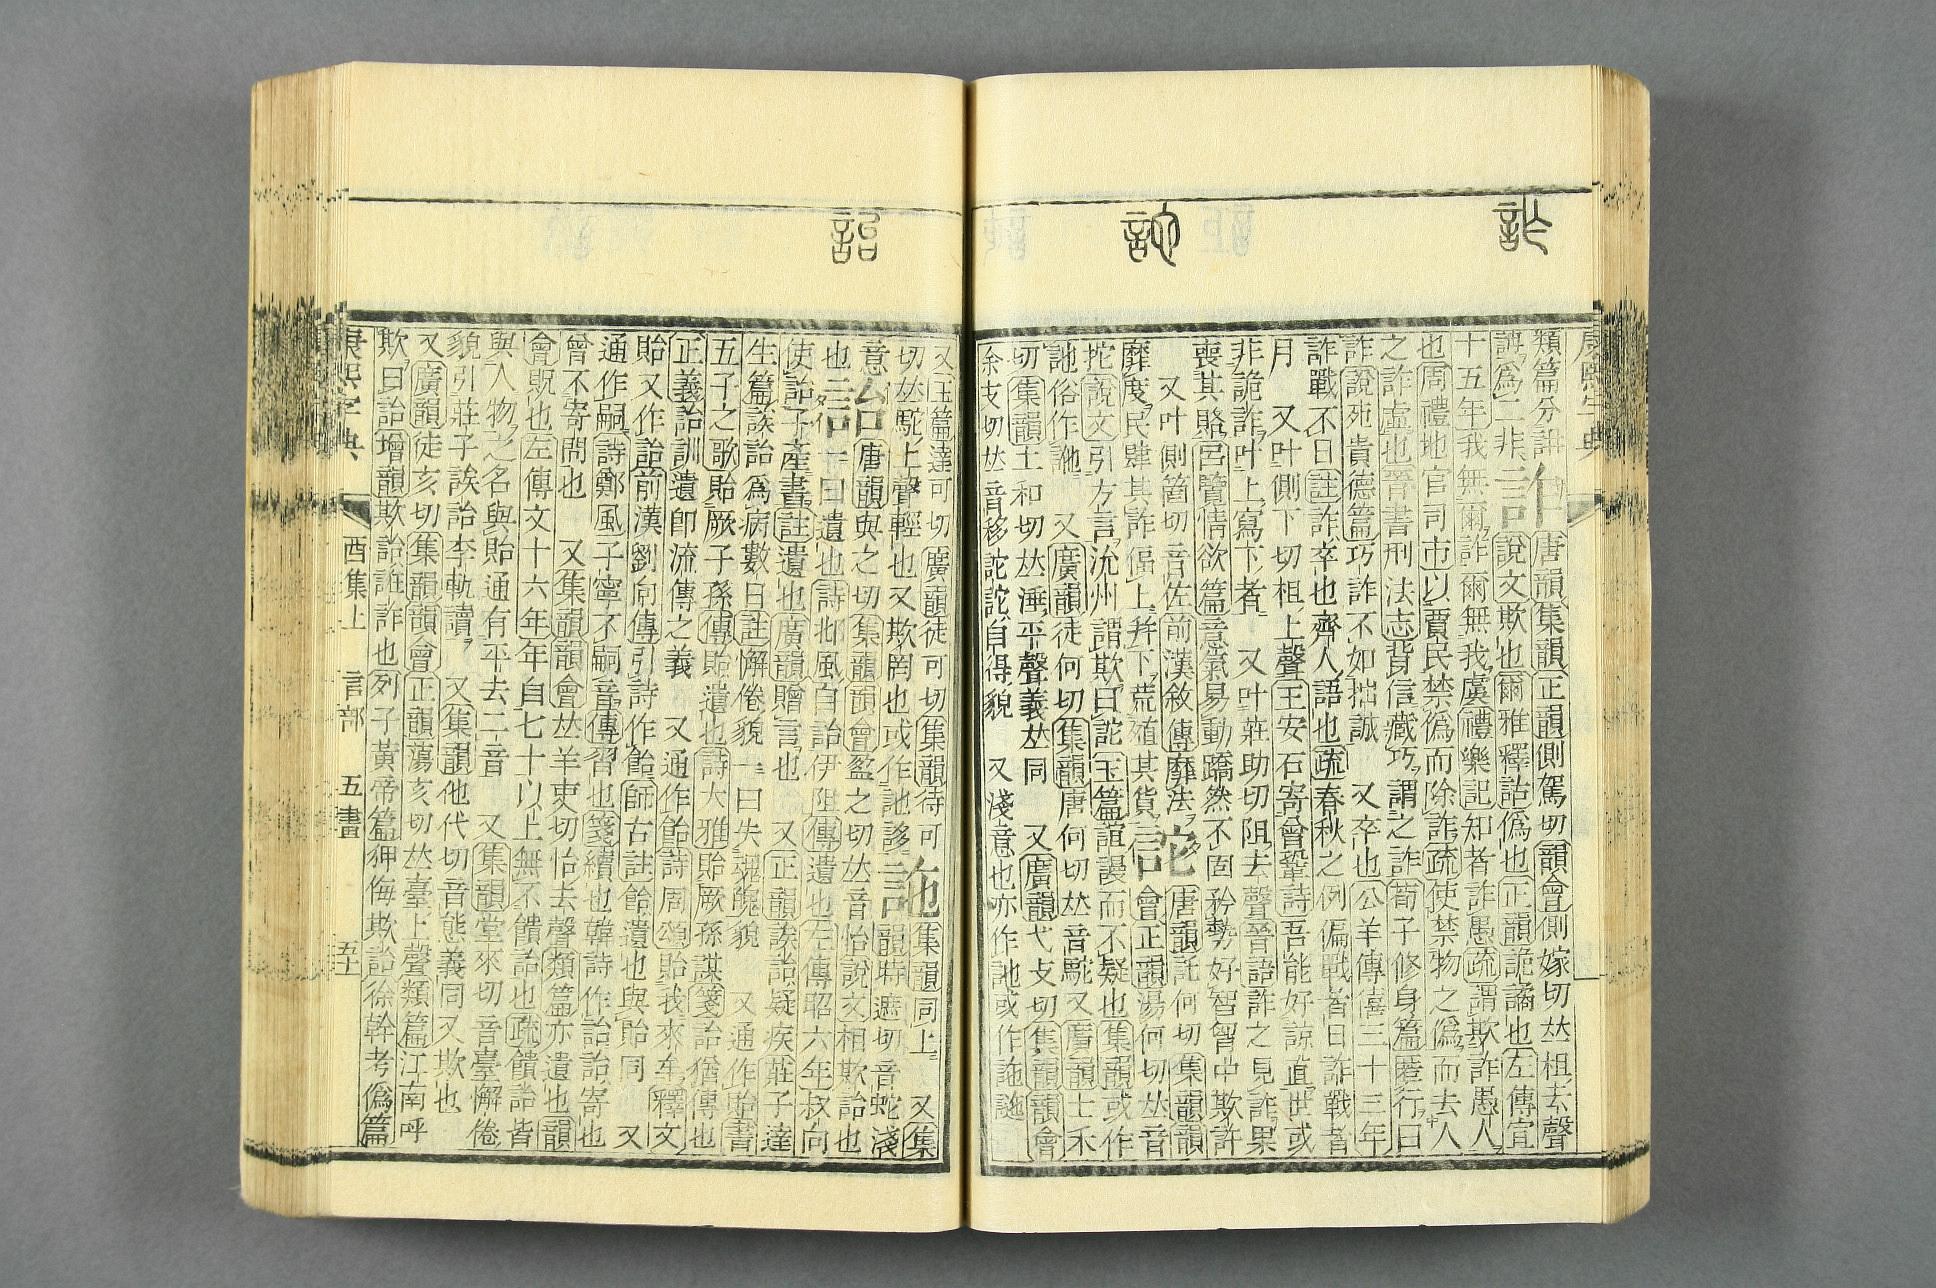 詐
詑
詒
康熙字典
類篇分詳
諀爲二非詐唐韻集韻正韻側駕切韻會側嫁切𠀤租去聲
說文欺也爾雅釋詁僞也正韻詭譎也左傳宣
十五年我無爾詐爾無我虞禮樂記知者詐愚疏謂欺詐愚人
也周禮地官司市以賈民禁僞而除詐疏使禁物之僞而去人
之詐虛也晉書刑法志背信藏巧謂之詐荀子修身篇匿行曰
詐說苑貴德篇巧詐不如拙誠 又卒也公羊傳僖三十三年
詐戰不日註詐卒也齊人語也疏春秋之例偏戰者日詐戰者
月 又叶側下切租上聲王安石寄曾鞏詩吾能好諒直世或
非詭詐叶上寫下者 又叶莊助切阻去聲晉語詐之見詐果
喪其賂呂覽情欲篇意氣易動蹻然不固矜勢好智胷中欺詐
又叶側箇切音佐前漢敘傳靡法
靡度民肆其詐偪上幷下荒殖其貨詑會正韻湯何切𠀤音
唐韻託何切集韻韻
拕說文引方言沇州謂欺曰詑玉篇誼謾而不疑也集韻或作
訑俗作訑 又廣韻徒何切集韻唐何切𠀤音駝又廣韻土禾
切集韻土和切𠀤涶平聲義𠀤同 又廣韻弋支切集韻韻會
余支切𠀤音移詑詑自得貌 又淺意也亦作訑或作詑
又玉篇達可切廣韻徒可切集韻待可
切𠀤駝上聲輕也又欺罔也或作訑䛄集韻同上 又集
韻時遮切音蛇淺
意
也詒唐韻與之切集韻韻會盈之切𠀤音怡說文相欺詒也
一曰遺也詩邶風自詒伊阻傳遺也左傳昭六年叔向
使詒子產書註遺也廣韻贈言也 又正韻誒詒疑疾莊子達
生篇誒詒爲病數日註懈倦貌一曰失魂魄貌 又通作貽書
五子之歌貽厥子孫傳貽遺也詩大雅貽厥孫謀箋詒猶傳也
正義詒訓遺卽流傳之義 又通作飴詩周頌貽我來牟釋文
貽又作詒前漢劉向傳引詩作飴師古註飴遺也與貽同 又
通作嗣詩鄭風子寧不嗣音傳習也箋續也韓詩作詒詒寄也
曾不寄問也 又集韻韻會𠀤羊吏切怡去聲類篇亦遺也韻
會貺也左傳文十六年年自七十以上無不饋詒也疏饋詒皆
與人物之名與貽通有平去二音 又集韻堂來切音臺懈倦
貌引莊子誒詒李軌讀 又集韻他代切音態義同又欺也
又廣韻徒亥切集韻韻會正韻蕩亥切𠀤臺上聲類篇江南呼
欺曰詒增韻欺詒誑詐也列子黃帝篇狎侮欺詒徐幹考僞篇
康熙字典 酉集上 言部 五畫 五十